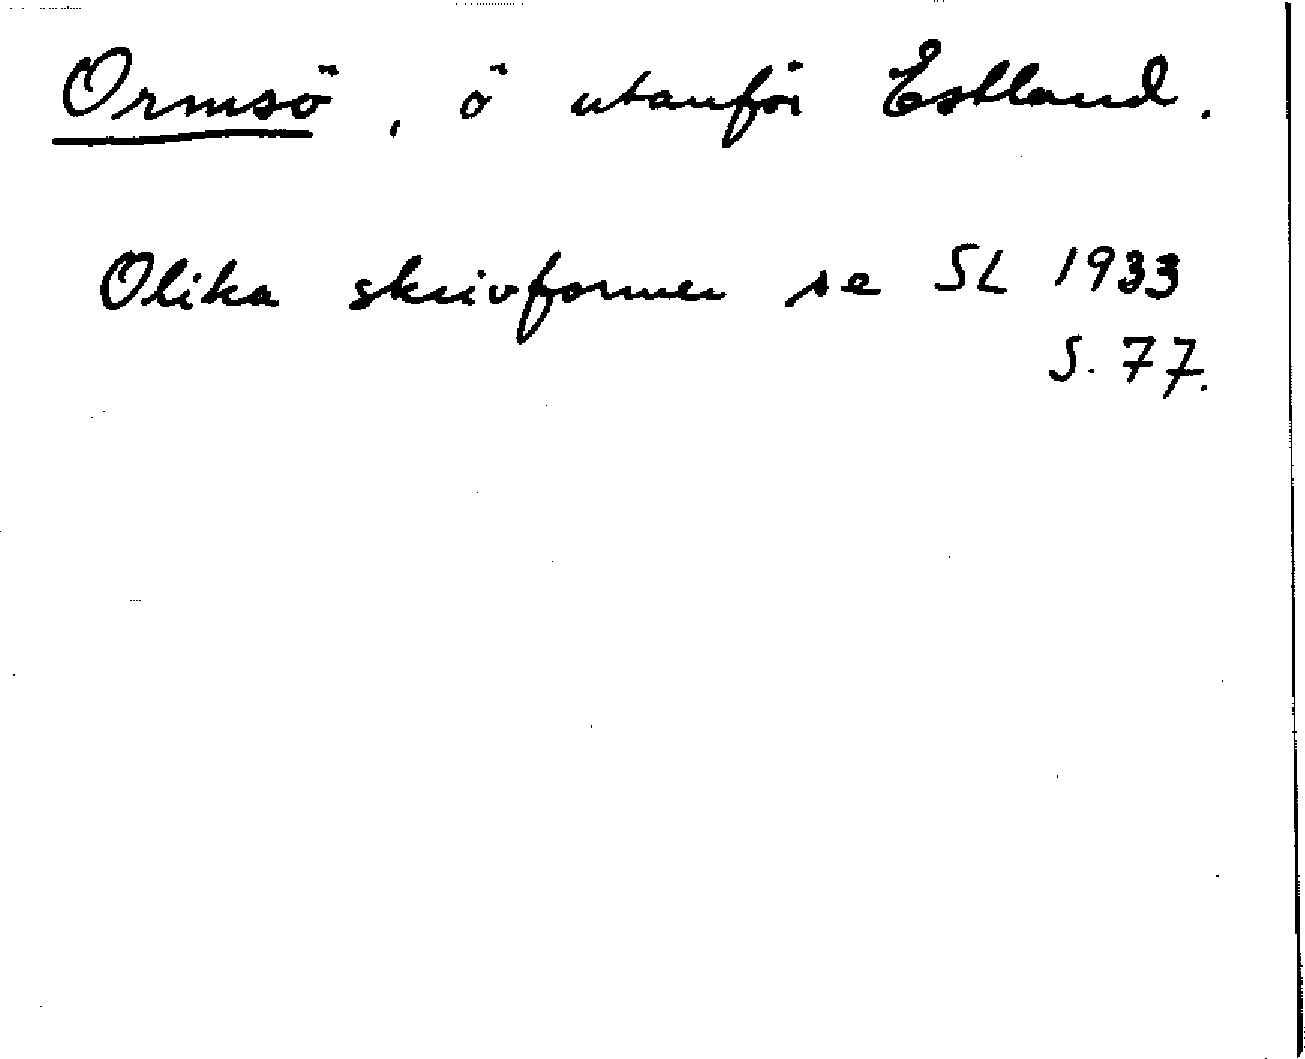 Ormsö, ö utanför Estland.
Olika skrivformer se SL 1933
S. 77.